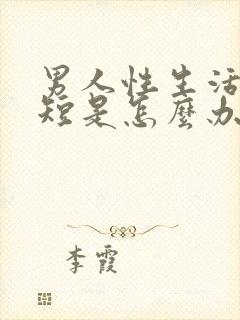 男人性生活
短是怎麼办
李霞